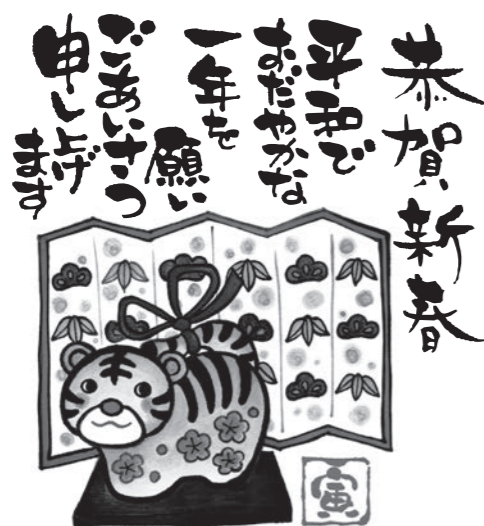 恭賀新春
平和で
おだやかな
一年を
願い
ごあいさつ
申し上げ
ます
寅